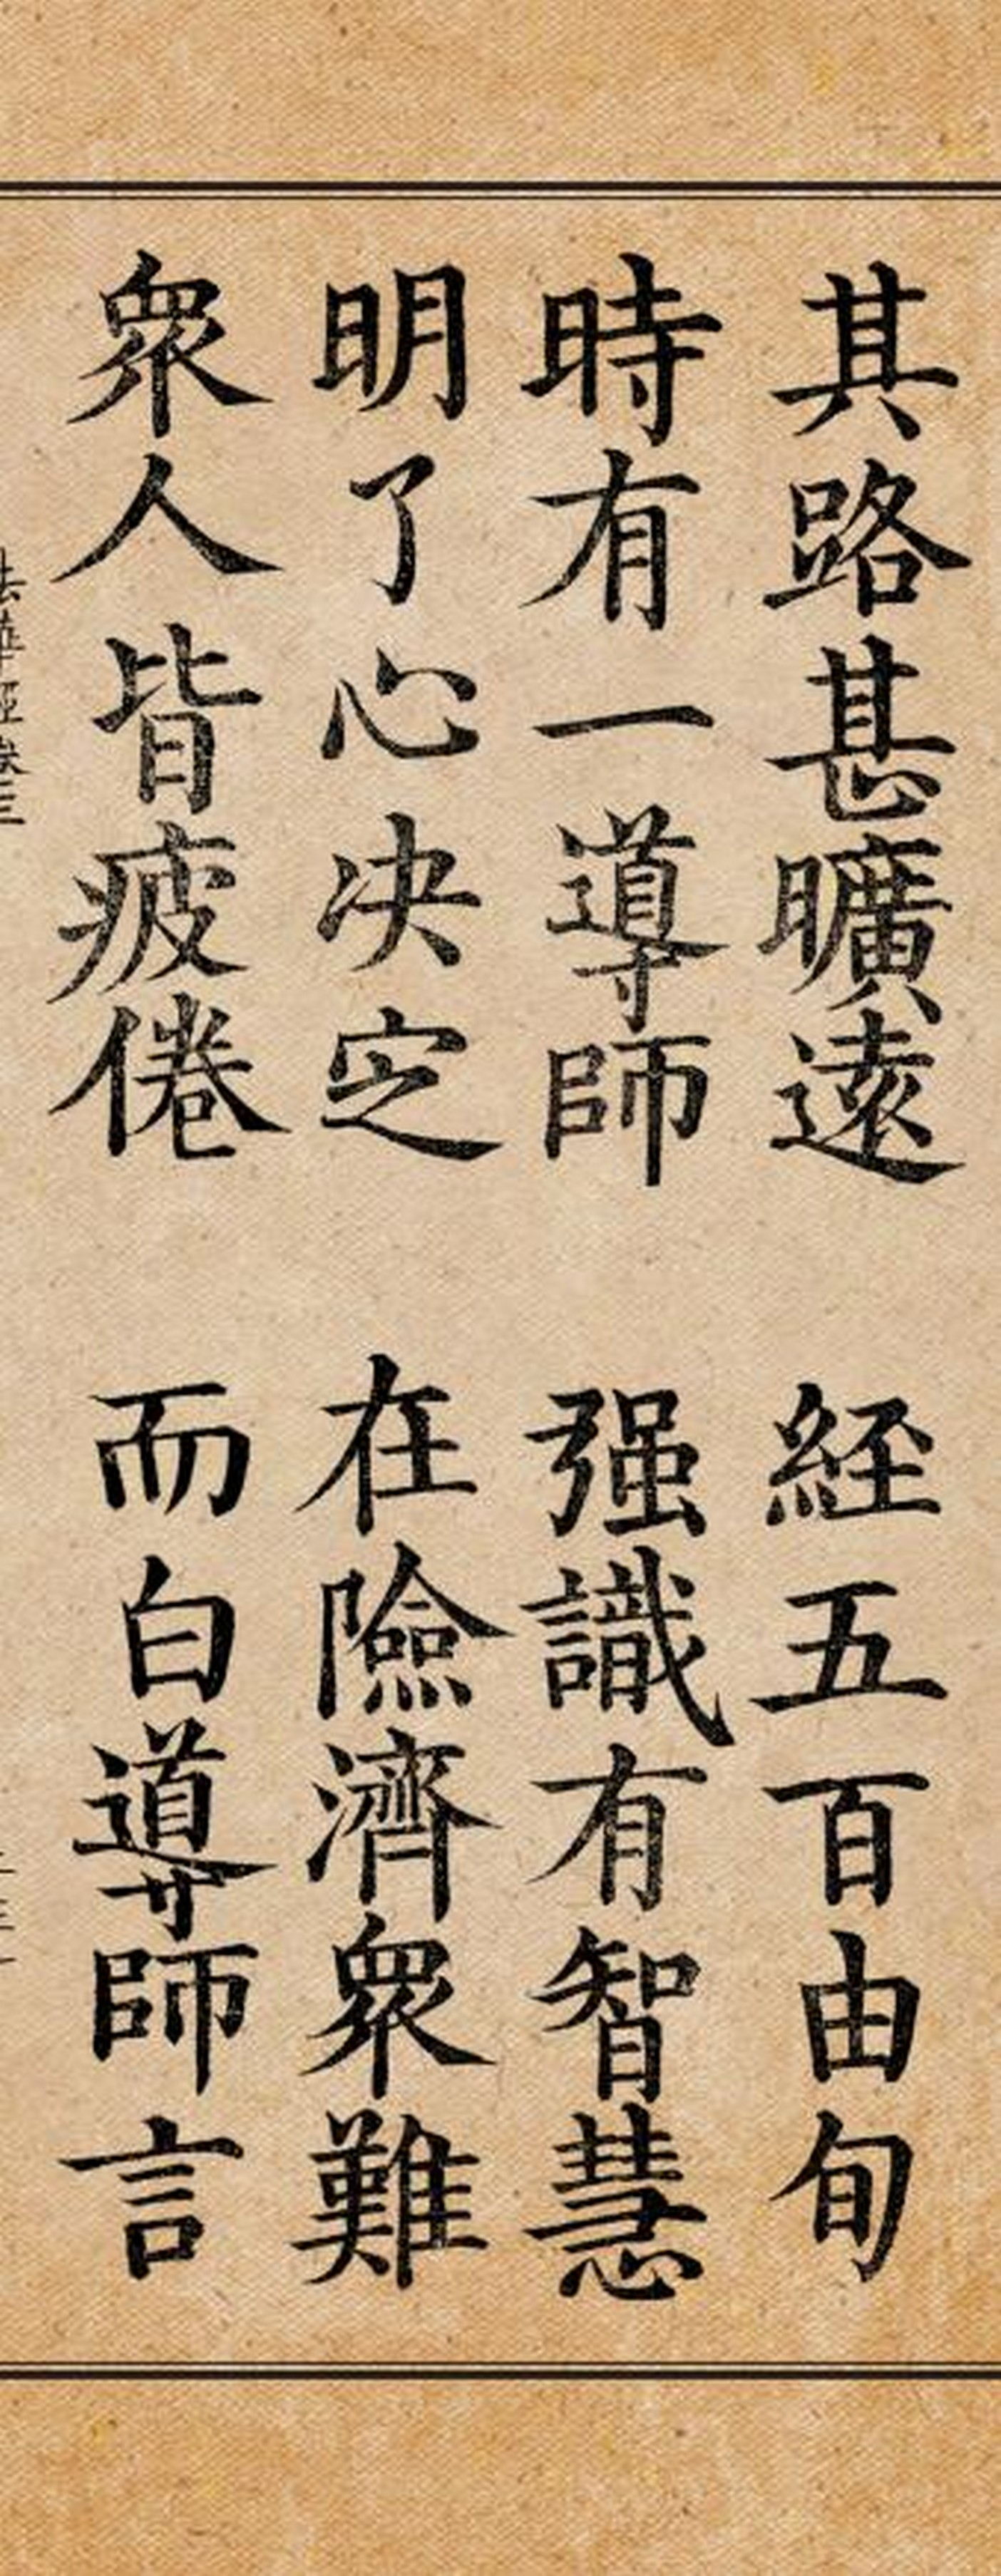 其路甚曠遠　經五百由旬
時有一導師　强識有智慧
明了心决定　在險濟衆難
衆人皆疲倦　而白導師言
法華經卷三